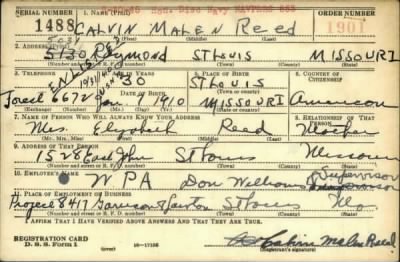 SERIAL NUMBER 1. NAME (Print) ORDER NUMBER
1488 CALVIN MALEN Reed 1901
(First) (Middle) (Last)
2. ADDRESS (Print)
5130 Raymond ST LOUIS MISSOURI
(Number and street or R. F. D. number) (Town) (County) (State)
3. TELEPHONE 4. AGE IN YEARS 5. PLACE OF BIRTH 6. COUNTRY OF CITIZENSHIP
30 ST LOUIS
DATE OF BIRTH (Town or county)
Forest 6672 Jan 1910 MISSOURI American
(Exchange) (No.) (Mo.) (Day) (Yr.) (State or country)
7. NAME OF PERSON WHO WILL ALWAYS KNOW YOUR ADDRESS 8. RELATIONSHIP OF THAT PERSON
Mrs. Elizabeth Reed Mother
(Mr., Mrs., Miss) (First) (Middle) (Last)
9. ADDRESS OF THAT PERSON
1528 East John St Louis Missouri
(Number and street or R. F. D. number) (Town) (County) (State)
10. EMPLOYER'S NAME Supervisor
WPA Don Williams
11. PLACE OF EMPLOYMENT OR BUSINESS
Project 8417 Garrison St Louis Mo
(Number and street or R. F. D. number) (Town) (County) (State)
I AFFIRM THAT I HAVE VERIFIED ABOVE ANSWERS AND THAT THEY ARE TRUE.
REGISTRATION CARD
D. S. S. Form 1 16—17105 Calvin Malen Reed